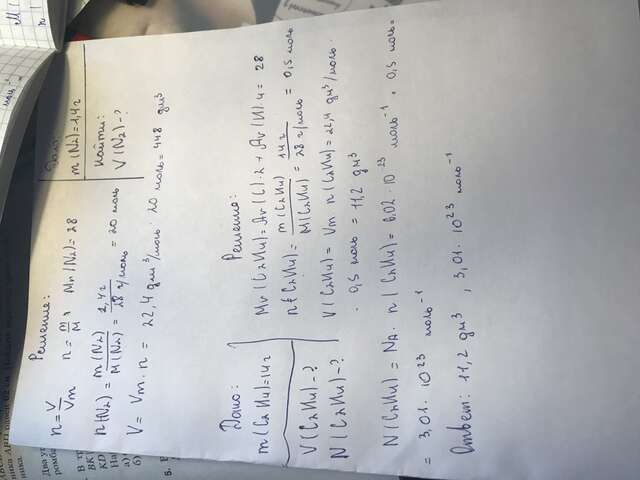 Дано:
m(N₂)=1,4г
Найти:
V(N₂)-?
Решение:
n=V/Vm n=m/M, Mr(N₂)=28
n(N₂)=m(N₂)/M(N₂)=1,4г/28г/моль=20 моль
V=Vm·n=22,4 дм³/моль·20 моль=448 дм³
Дано:
m(C₂H₄)=14г
V(C₂H₄)-?
N(C₂H₄)-?
Решение:
Mr(C₂H₄)=Ar(C)·2+Ar(H)·4=28
n(C₂H₄)=m(C₂H₄)/M(C₂H₄)=14г/28г/моль=0,5 моль
V(C₂H₄)=Vm n(C₂H₄)=22,4 дм³/моль·
·0,5 моль=11,2 дм³
N(C₂H₄)=NA·n(C₂H₄)=6,02·10²³ моль⁻¹·0,5 моль=
=3,01·10²³ моль⁻¹
Ответ: 11,2 дм³, 3,01·10²³ моль⁻¹